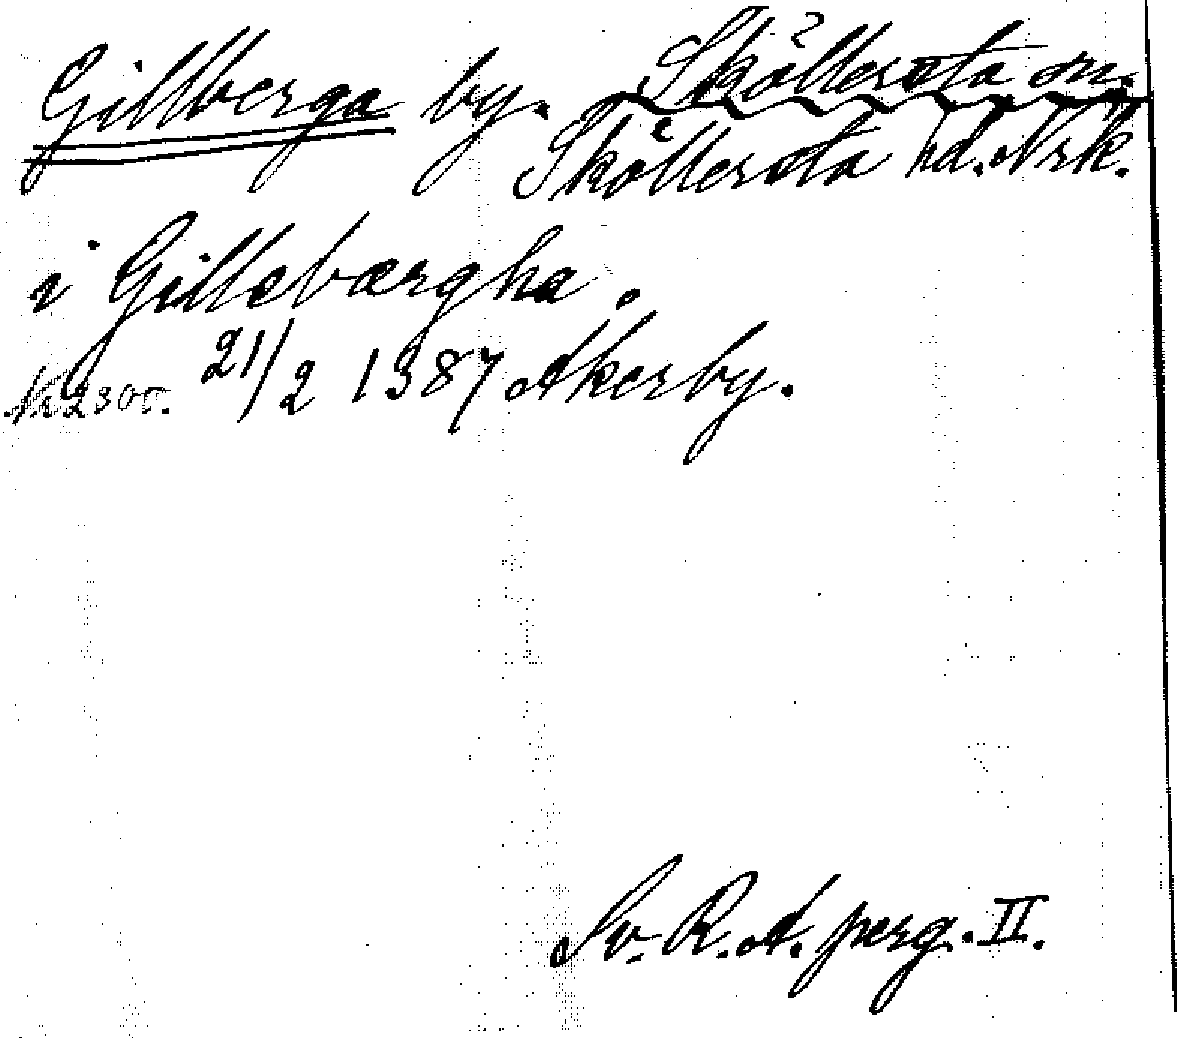 Gillberga by. Sköllersta sn.
Sköllersta hd. Nrk.
i Gillebærgha.
Nr 2300. 21/2 1387 Akerby.
Sv. R. A. perg. II.